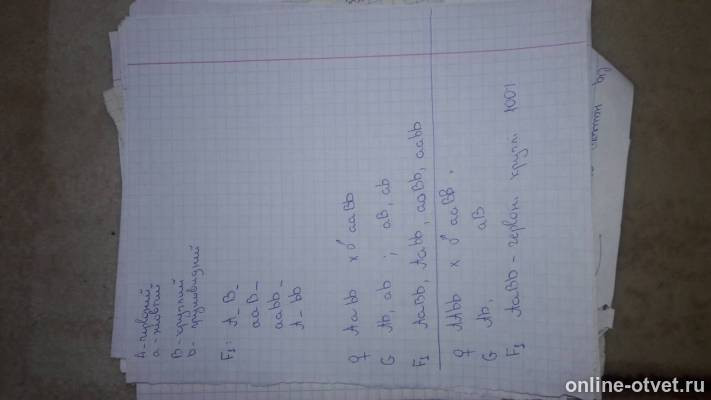 A - червоний
a - жовтий
B - круглий
b - грушовидний
F1: A_B_
aaB_
aabb_
A_bb
♀ Aabb x ♂ aaBb
G Ab, ab ; aB, ab
F1 AaBb, Aabb, aaBb, aabb
♀ AAbb x ♂ aaBB,
G Ab, aB
F1 AaBb - червон. кругл 100%
online-otvet.ru